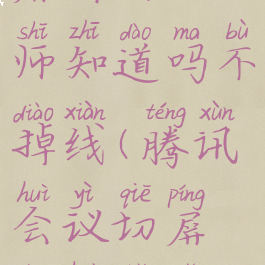 shī zhī dào ma bù
师知道吗不
diào xiàn téng xùn
掉线(腾讯
huì yì qiē píng
会议切屏